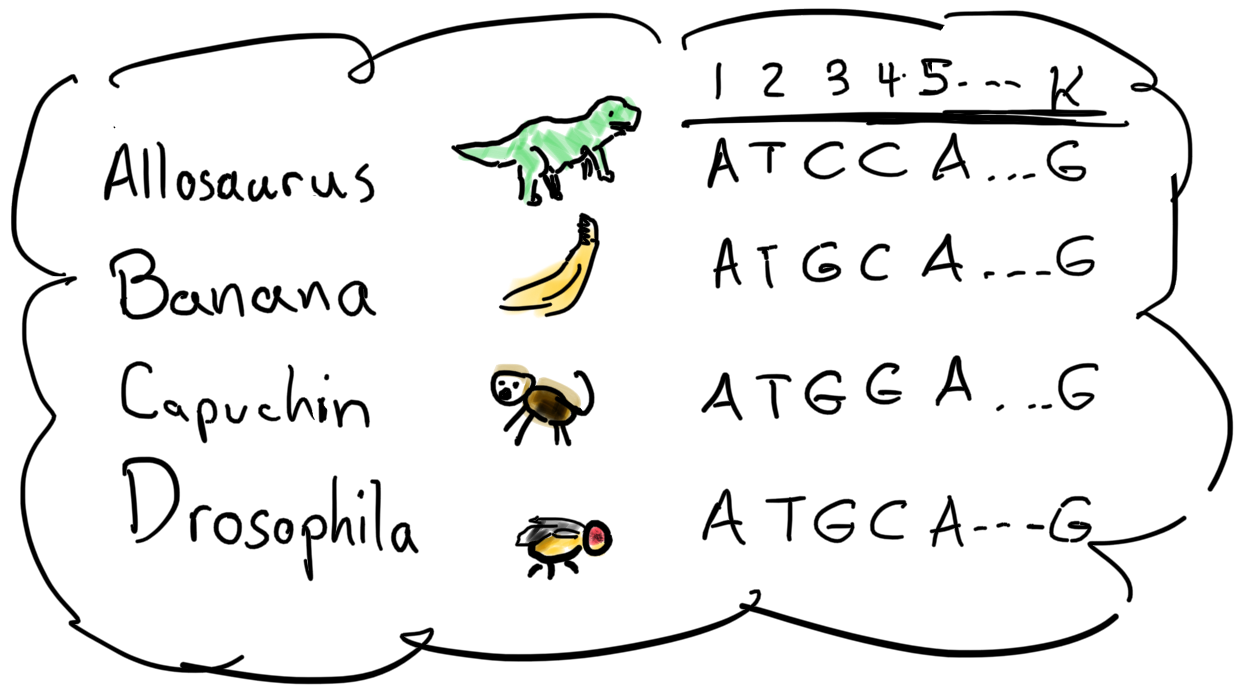 1 2 3 4 5 --- K
Allosaurus A T C C A ... G
Banana A T G C A .--- G
Capuchin A T G G A ... G
Drosophila A T G C A --- G